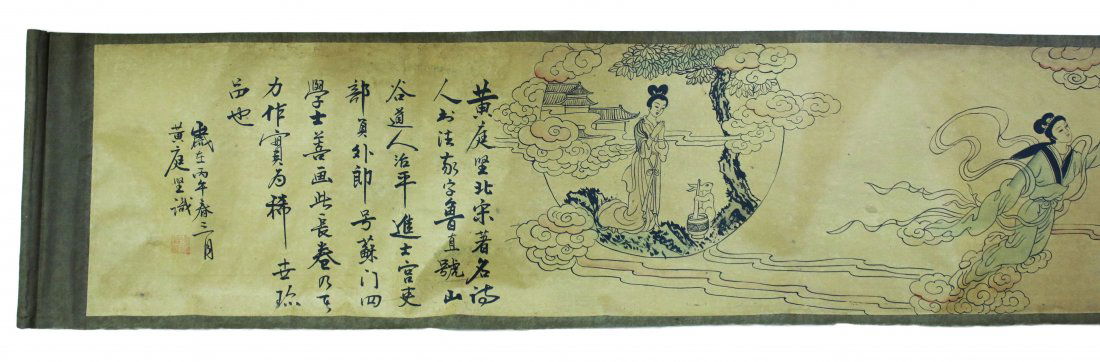 黄庭坚北宋著名诗
人书法家字魯直號山
谷道人治平進士官吏
部員外郎号蘇门四
學士善画此長卷乃其
力作實为稀世珎
品也
歲在丙午春三月
黄庭坚識